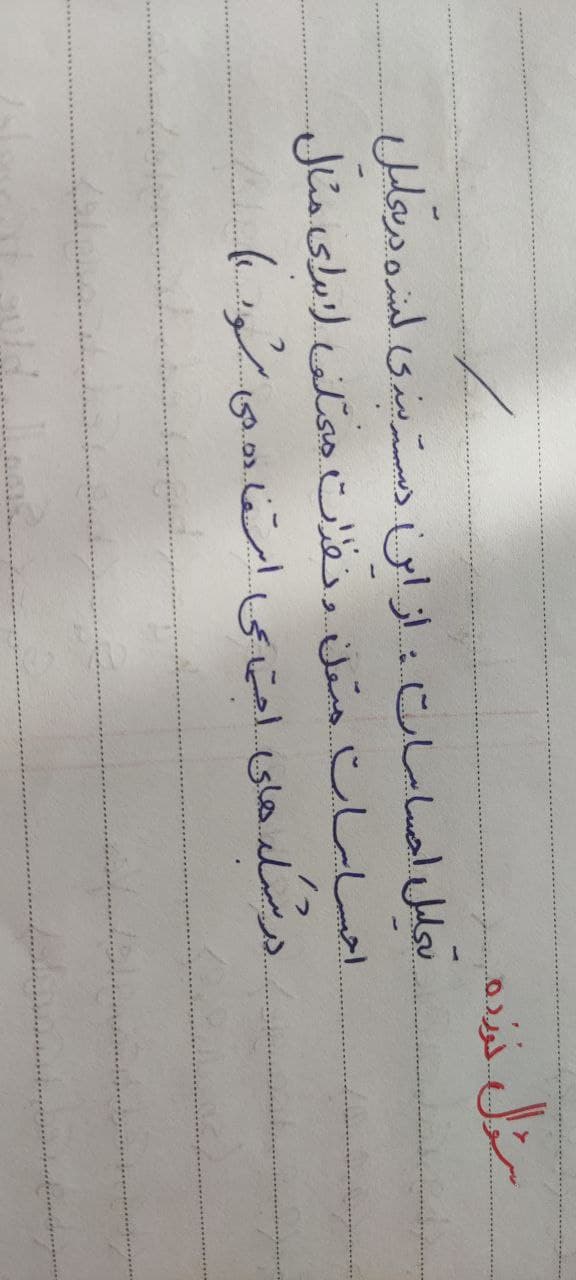 سؤال نوزده
تحلیل احساسات : از این دسته بندی کننده در تحلیل
احساسات متون و نظرات مختلف (برای مثال
در شبکه های اجتماعی استفاده می شود.)